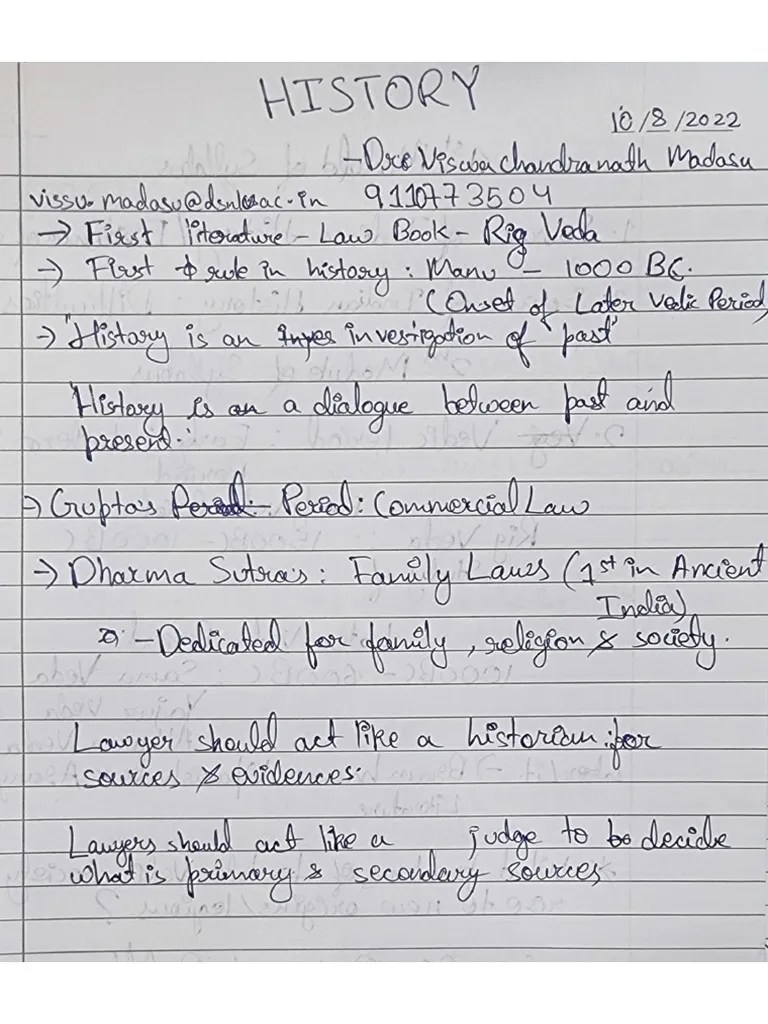 HISTORY
10/8/2022
- Dr. Viswa chandranath Madasu
vissu.madasu@dsnlu.ac.in 9110773504
→ First literature - Law Book - Rig Veda
→ First rule in history : Manu - 1000 BC.
(Onset of Later Vedic Period)
→ "History is an investigation of 'past'
'History is an a dialogue between past and
present.'
→ Gupta's Period : Commercial Law
→ Dharma Sutra's : Family Laws (1st in Ancient
India)
- Dedicated for family, religion & society.
Lawyer should act like a historian for
sources & evidences.
Lawyers should act like a judge to decide
what is primary & secondary sources